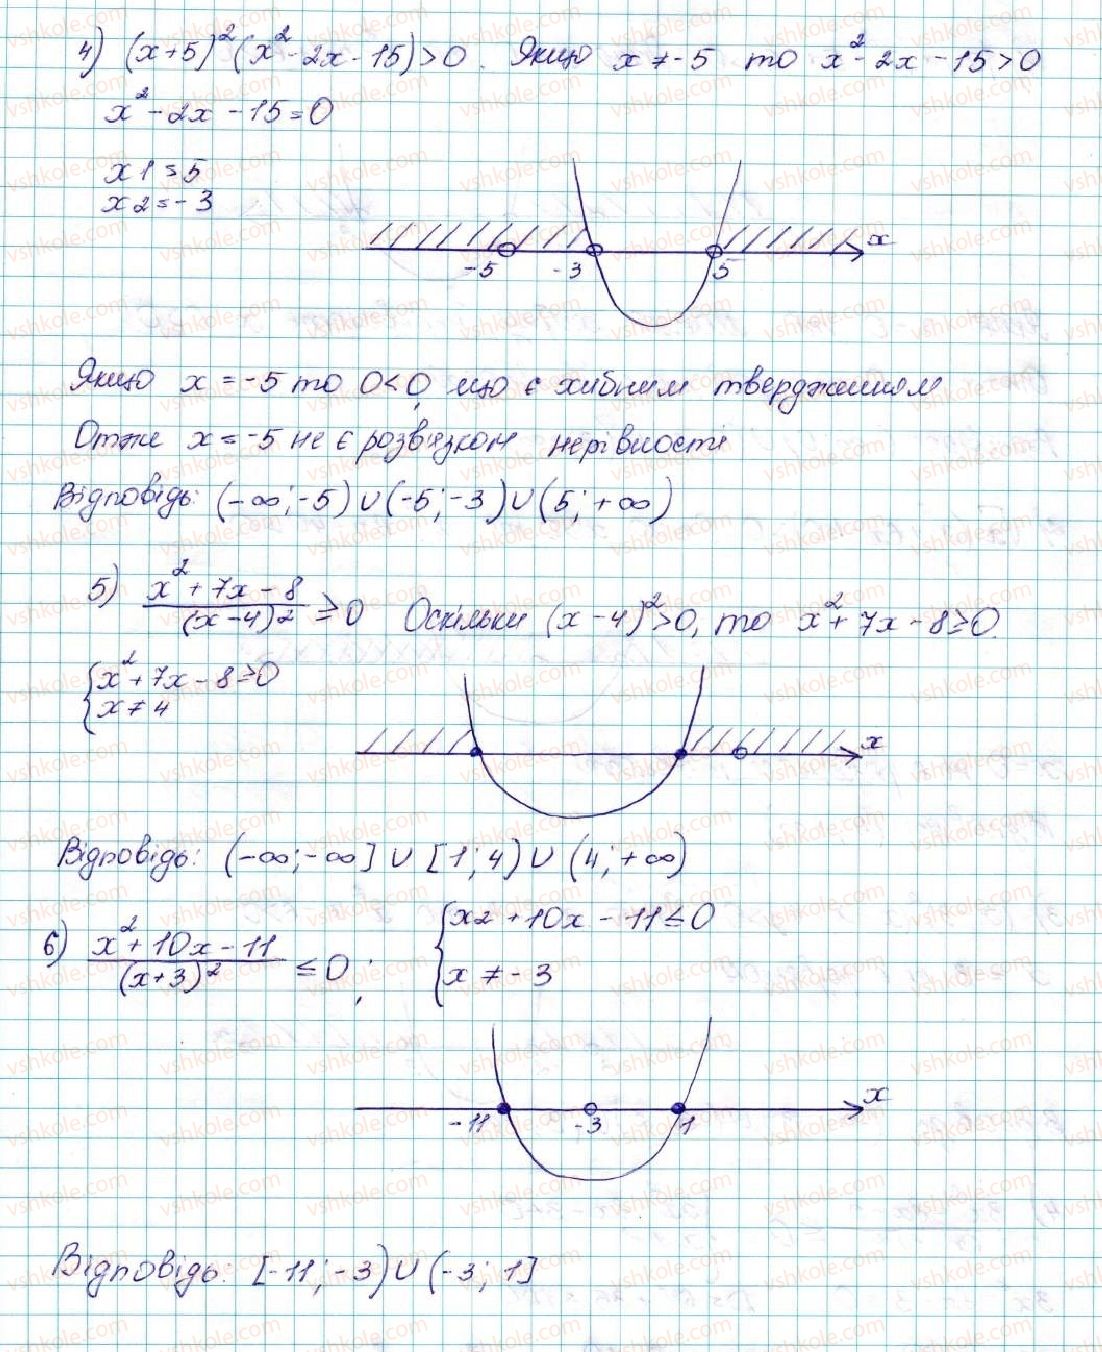 4) (x+5)²(x²-2x-15)>0. Якщо x≠-5 то x²-2x-15>0
x²-2x-15=0
x1=5
x2=-3
x
-5 -3 5
Якщо x=-5 то 0<0, що є хибним твердженням
Отже x=-5 не є розв'язком нерівності
Відповідь: (-∞;-5)∪(-5;-3)∪(5;+∞)
5) (x²+7x-8)/(x-4)² ≥0 Оскільки (x-4)²>0, то x²+7x-8≥0.
{x²+7x-8≥0
x≠4
x
Відповідь: (-∞;-∞]∪[1;4)∪(4;+∞)
6) (x²+10x-11)/(x+3)² ≤0; {x2+10x-11≤0
x≠-3
x
-11 -3 1
Відповідь: [-11;-3)∪(-3;1]
vshkole.com